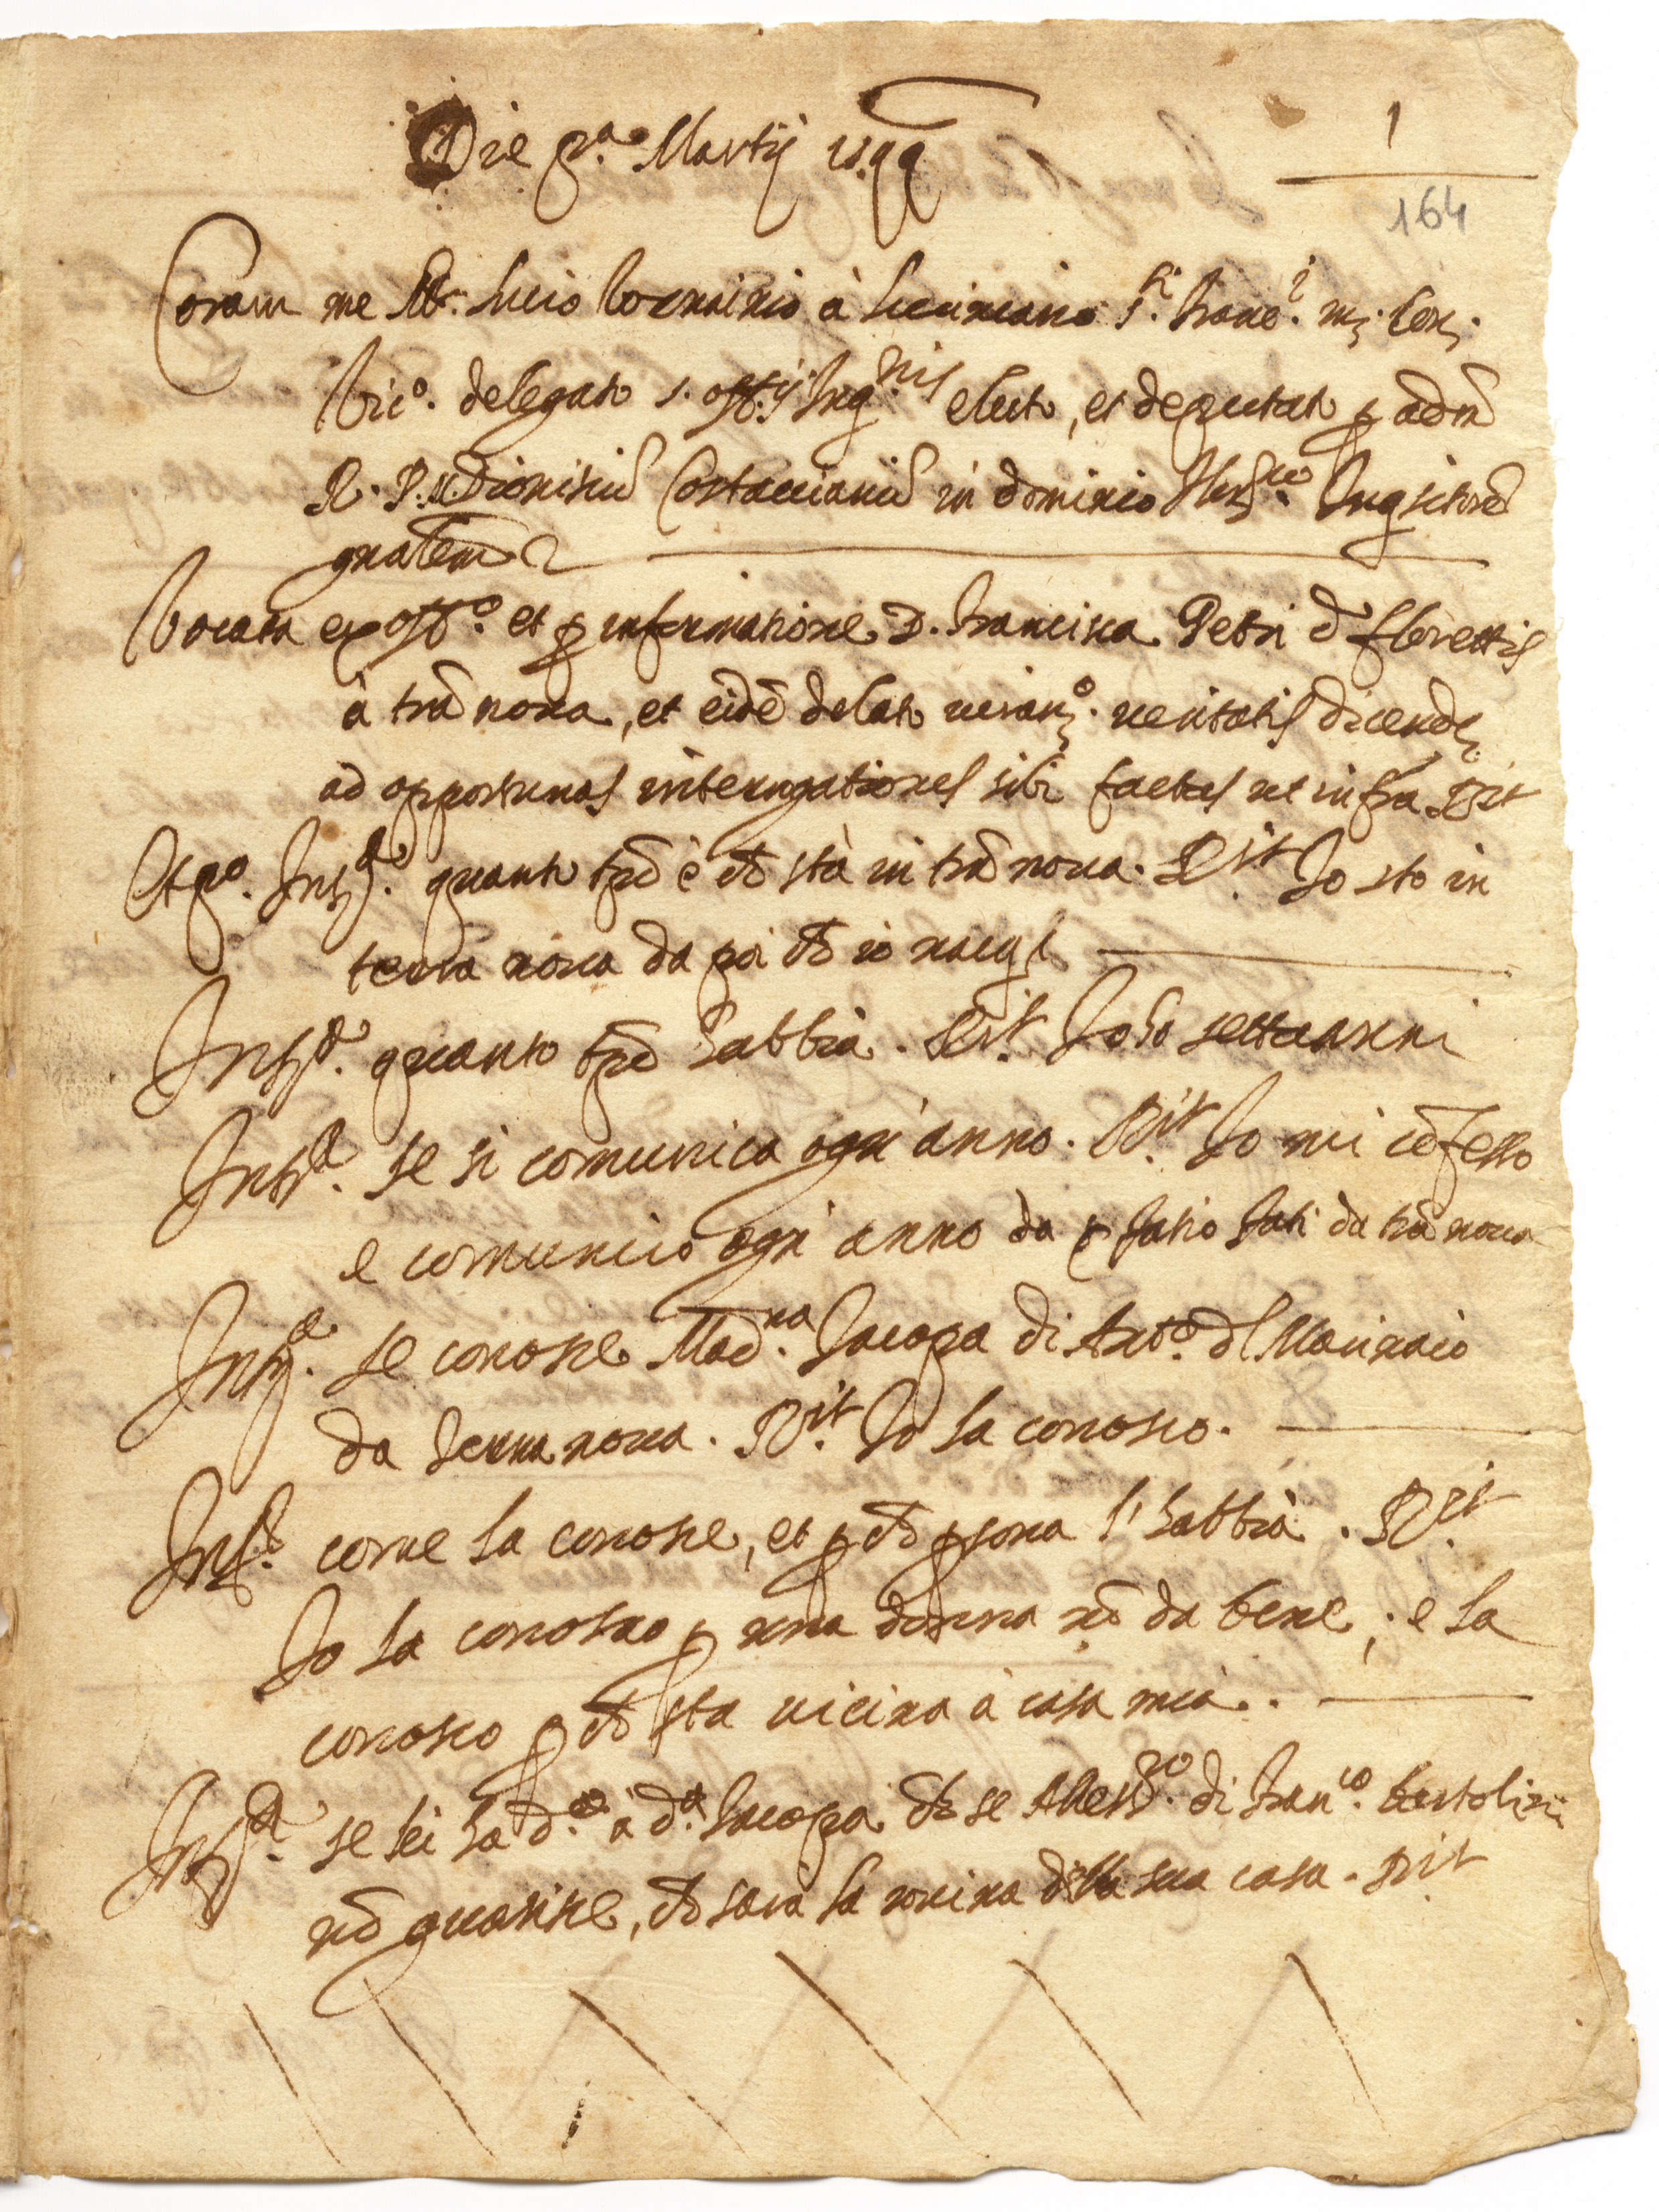 Die p.ª Martij 1599
1
164
Coram me fr. Lucio à s.ti Franc.i m. Con.
Vic.º delegato s. off.ij Inq.nis electo, et deputat p adm
R. P. M. Dionisiū Costaccianū in dominio Flor. Inqsitorē
gnalem
Vocata ex off.º et p informatione D. Francisca Petri d Florettis
à trā nova, et eidē delato iuram.º veritatis dicende
ad opportunas interrogationes sibi factas ut infra Rit
Et p.º Int.ª quanto tpō è chē stà in trā nova. R.it Io sto in
terra nova da poi chē io nacqi
Int.ª quanto tpō habbia. R.it Io ho settanni
Int.ª se si comunica ogni anno. R.it Io mi cōfesso
e comunico ogni anno da p Satio Sati da trā nova
Int.ª se conosce Mad.na Jacopa di Ant.º dl Mannaio
da Terra nova. R.it Io la conosco.
Int.ª come la conosce, et p chē psona l'habbia. R.it
Io la conosco p una donna nō da bene, e la
conosco p chē sta vicina à casa mia.
Int.ª se lei ha d.º à d.ª Jacopa chē se Aless.ro di Fran.co bartolini
nō guarisce, chē sarà la rovina della sua casa. Rit